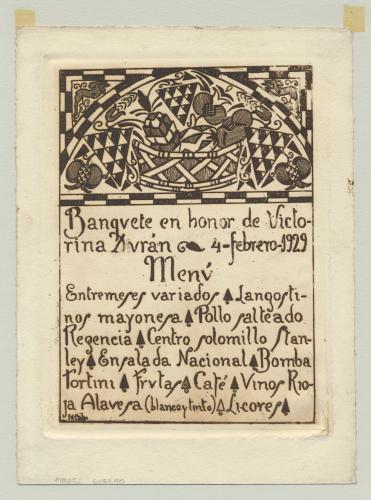 Banquete en honor de Victo-
rina Durán 4-febrero-1929
Menú
Entremeses variados Langosti-
nos mayonesa Pollo salteado
Regencia Centro solomillo Stan-
ley Ensalada Nacional Bomba
Tortini Frutas Café Vinos Rio-
ja Alavesa (blanco y tinto) Licores